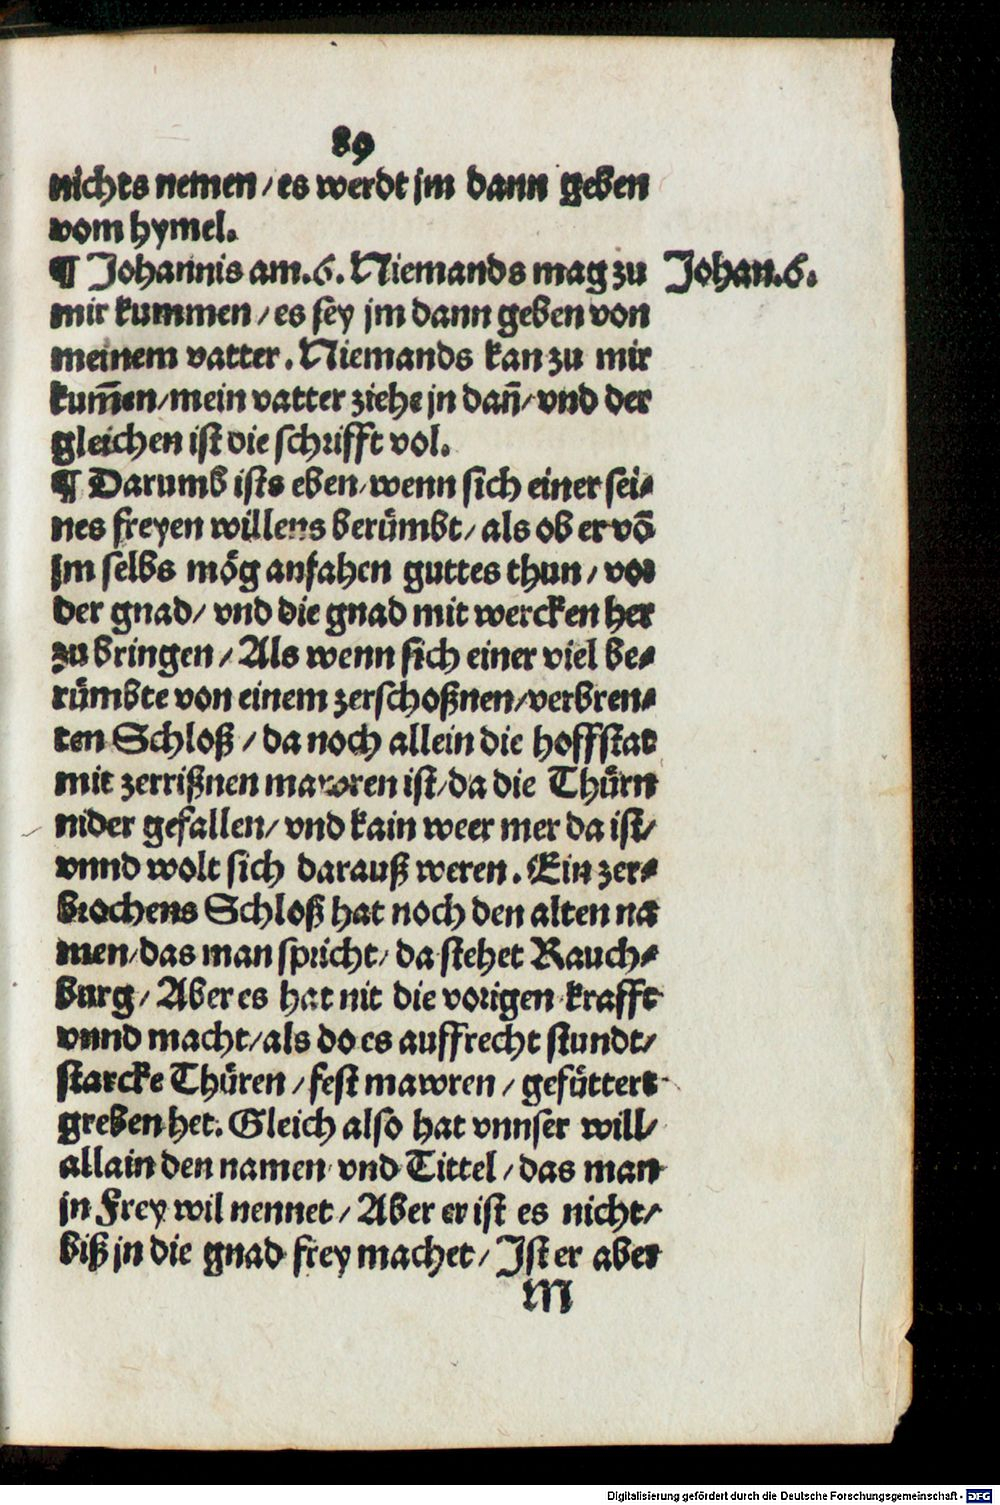 89
nichts nemen / es werdt jm dann geben
vom hymel.
¶ Johannis am.6. Niemands mag zu
Johan.6.
mir kummen / es sey jm dann geben von
meinem vatter. Niemands kan zu mir
kum̄en / mein vatter ziehe jn dañ / vnd der
gleichen ist die schrifft vol.
¶ Darumb ists eben / wenn sich einer sei⸗
nes freyen willens berümbt / als ob er vō
jm selbs mög anfahen guttes thun / vor
der gnad / vnd die gnad mit wercken her
zu bringen / Als wenn sich einer viel be⸗
rümbte von einem zerschoßnen / verbren⸗
ten Schloß / da noch allein die hoffstat
mit zerrißnen mawren ist / da die Thürn
nider gefallen / vnd kain weer mer da ist /
vnnd wolt sich darauß weren. Ein zer⸗
brochens Schloß hat noch den alten na
men / das man spricht / da stehet Rauch⸗
burg / Aber es hat nit die vorigen krafft
vnnd macht / als do es auffrecht stundt /
starcke Thüren / fest mawren / gefüttert
greben het. Gleich also hat vnnser will /
allain den namen vnd Tittel / das man
jn Frey wil nennet / Aber er ist es nicht /
biß jn die gnad frey machet / Ist er aber
M
Digitalisierung gefördert durch die Deutsche Forschungsgemeinschaft - DFG